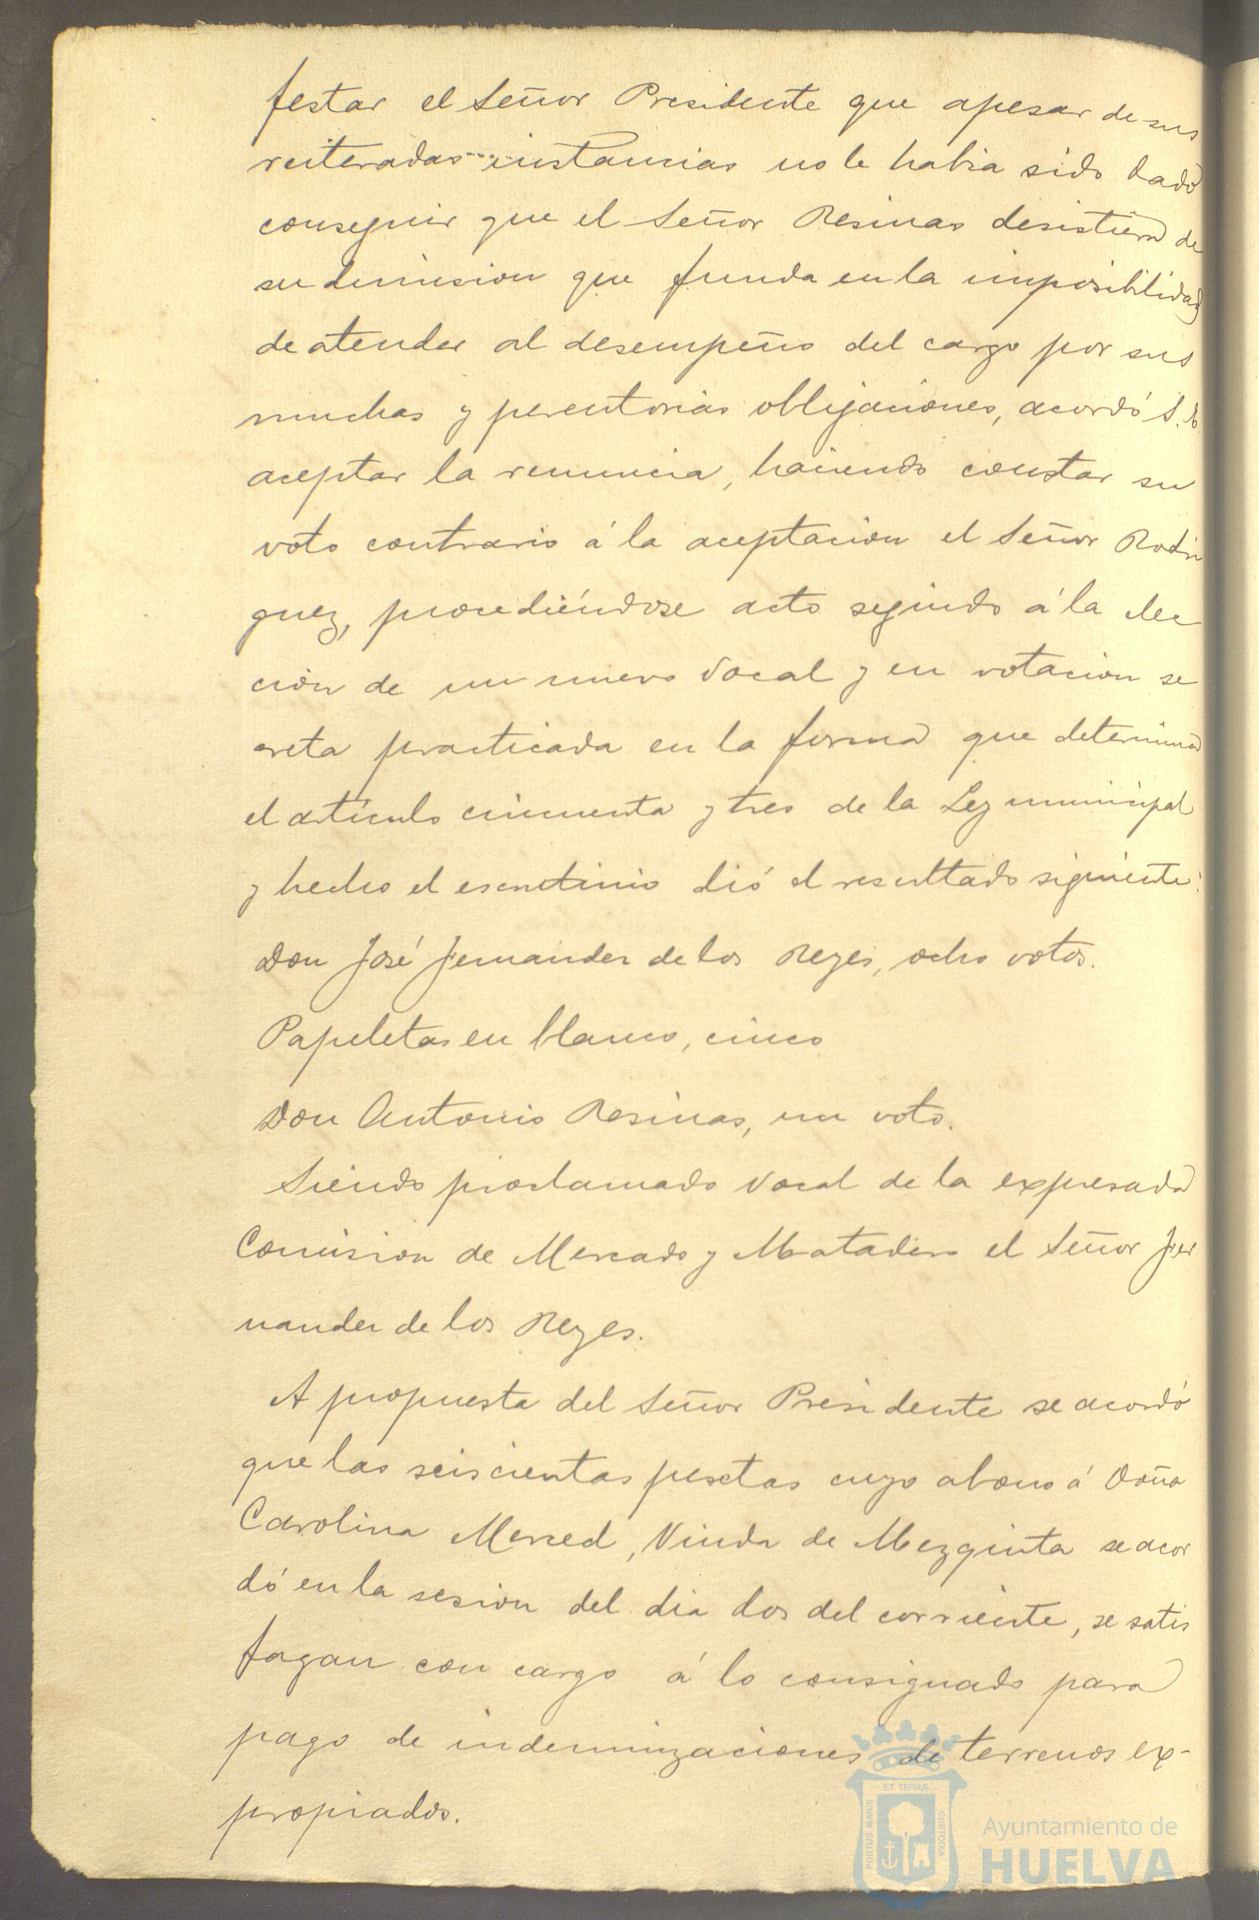 festar el Señor Presidente que apesar de sus
reiteradas instancias no le habia sido dado
conseguir que el Señor Resinas desistiera de
su dimision que funda en la imposibilidad
de atender al desempeño del cargo por sus
muchas y perentorias obligaciones, acordó S.E.
aceptar la renuncia, haciendo constar su
voto contrario á la aceptacion el Señor Rodri
guez, procediéndose acto seguido á la elec
cion de un nuevo Vocal y en votacion se
creta practicada en la forma que determina
el artículo cincuenta y tres de la Ley municipal
y hecho el escrutinio dió el resultado siguiente:
Don José Fernandez de los Reyes, ocho votos.
Papeletas en blanco, cinco
Don Antonio Resinas, un voto.
Siendo proclamado Vocal de la expresada
Comision de Mercado y Matadero el Señor Fer
nandez de los Reyes.
A propuesta del Señor Presidente se acordó
que las seiscientas pesetas cuyo abono á Doña
Carolina Merced, Viuda de Mezquita se acor
dó en la sesion del dia dos del corriente, se satis
fagan con cargo á lo consignado para
pago de indemnizaciones de terrenos ex-
propiados.
PORTUS MARIS ET TERRA CUSTODIA
Ayuntamiento de
HUELVA